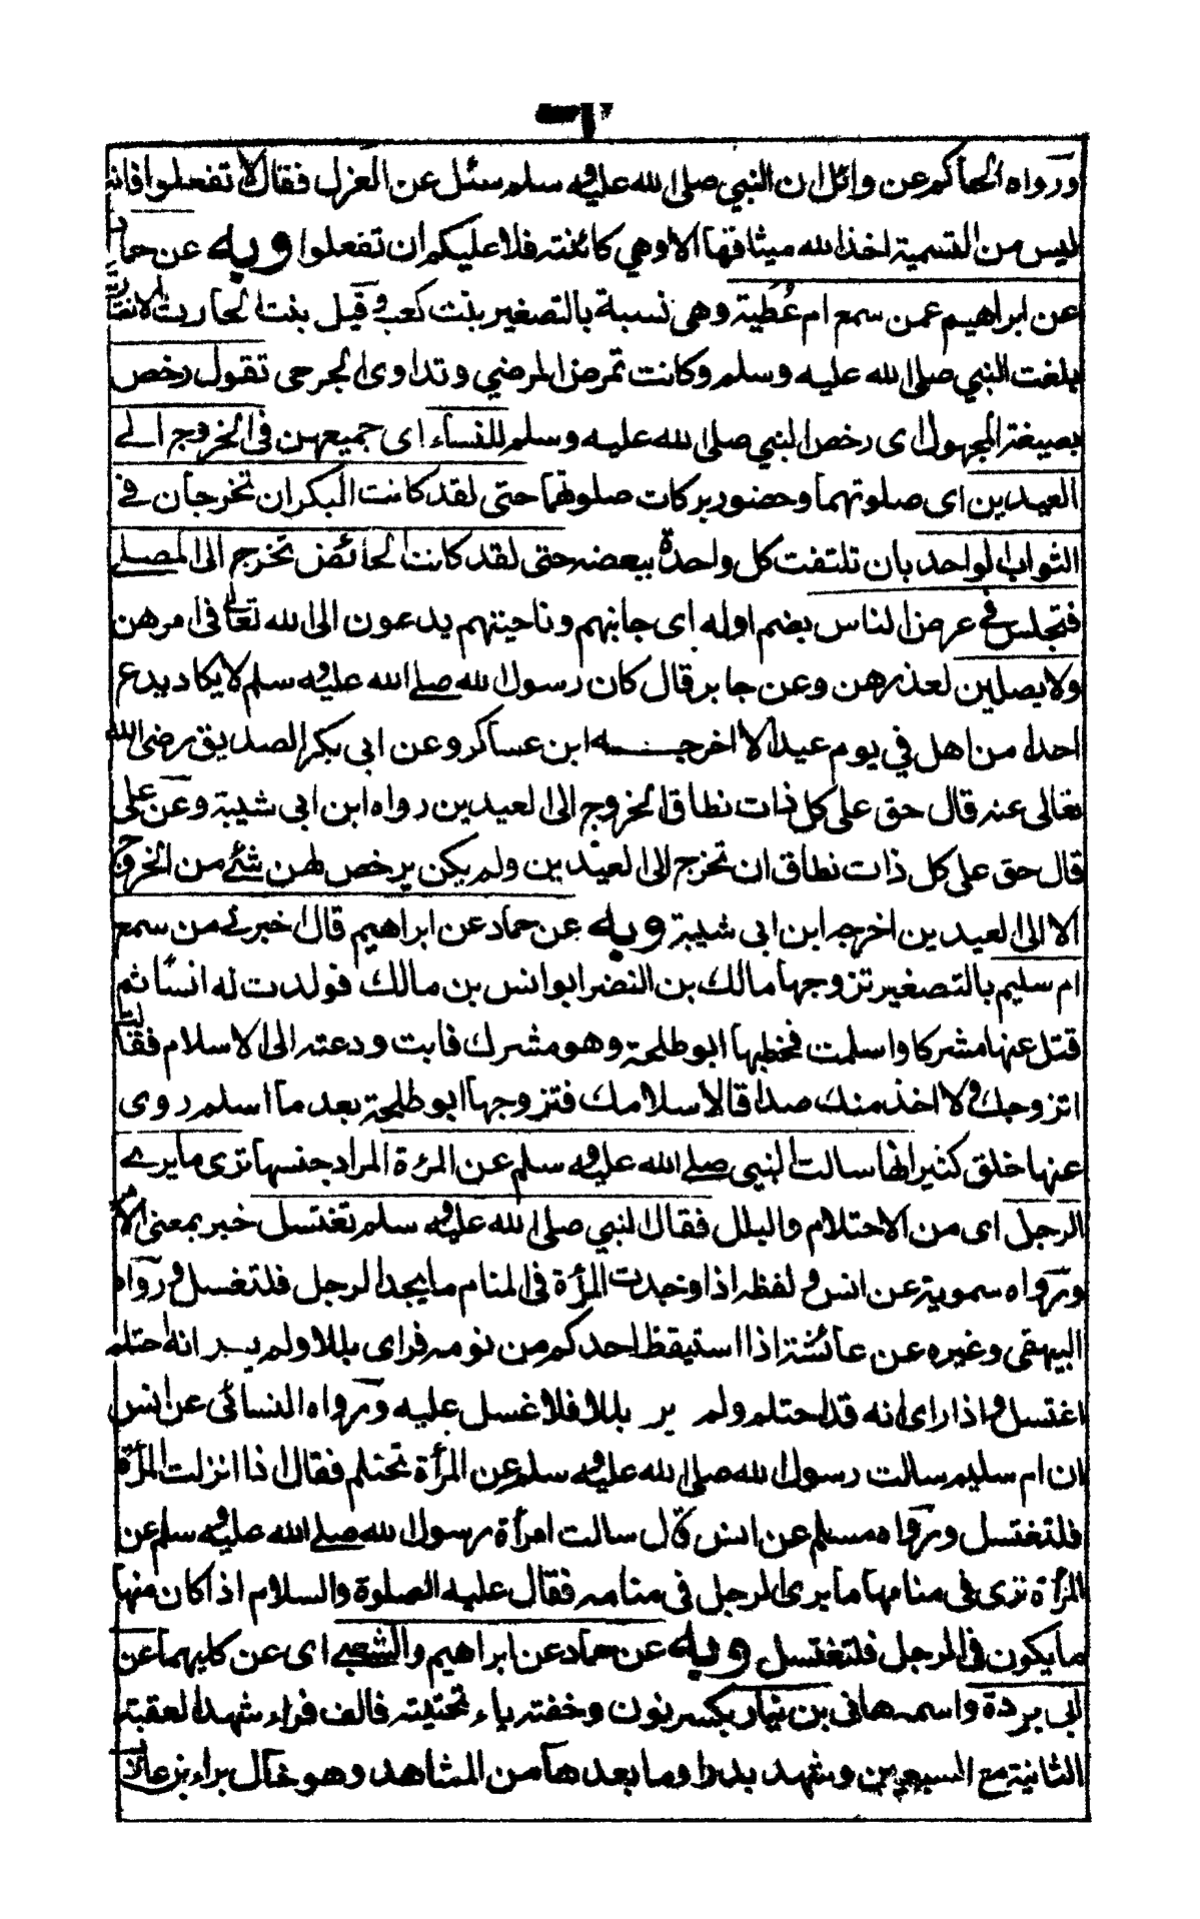 ورواه الحاكم عن واثل ان النبي صلى الله عليه و سلم سئل عن العزل فقال لا تفعلوا فانه
ليس من القسمية اخذ الله ميثاقها الا وهي كائنة فلا عليكم ان تفعلوا وبه عن حماد
عن ابراهيم عمن سمع ام عُطية وهى نسبة بالتصغير بنت كعب و قيل بنت الحارث الانصارية
بلغت النبي صلى الله عليه وسلم وكانت تمرض المرضي وتداوى الجرحى تقول رخص
بصيغة المجهول اى رخص النبي صلى الله عليه وسلم للنساء اى جميعهن فى الخروج الے
العيدين اى صلوتهما وحضور بركات صلوتهما حتى لقد كانت البكران تخرجان في
الثواب لواحد بان تلتفت كل واحدة ببعضه حتى لقد كانت الحائض تخرج الى المصلى
فتجلس في عرض الناس بضم اوله اى جانبهم وناحيتهم يدعون الى الله تعالى فى امرهن
ولا يصلين لعذرهن وعن جابر قال كان رسول الله صلے الله عليه و سلم لا يكاد يدع
احدا من اهل في يوم عيد الا اخرجه ابن عساكر وعن ابى بكر الصديق رضى الله
تعالى عنه قال حق على كل ذات نطاق الخروج الى العيدين رواه ابن ابى شيبة وعن على
قال حق على كل ذات نطاق ان تخرج الى العيدين ولم يكن يرخص لهن شئے من الخروج
الا الى العيدين اخرجه ابن ابى شيبة وبه عن حماد عن ابراهيم قال اخبرنے من سمع
ام سليم بالتصغير تزوجها مالك بن النضر ابو انس بن مالك فولدت له انسا ثم
قتل عنها مشركا واسلمت فخطبها ابو طلحة وهو مشرك فابت ودعته الى الاسلام فقالت
اتزوجك و لا اخذ منك صداقا لاسلامك فتزوجها ابو طلحة بعد ما اسلم روى
عنها خلق كثير انها سالت النبى صلے الله عليه و سلم عن المرءة المراد جنسها ترى ما يرے
الرجل اى من الاحتلام والبلل فقال النبي صلى الله عليه و سلم تغتسل خبر بمعنى الامر
ورواه سموية عن انس و لفظه اذا وجدت المرأة فى المنام ما يجد الرجل فلتغسل و رواه
البيهقى وغيره عن عائشة اذا استيقظ احدكم من نومه فراى بللا ولم ير انه احتلم
اغتسل و اذا راى انه قد احتلم ولم ير بللا فلا غسل عليه ورواه النسائى عن انس
ان ام سليم سالت رسول الله صلى الله عليه و سلم عن المرأة تحتلم فقال اذا انزلت المرأة
فلتغتسل ورواه مسلم عن انس قال سالت امرأة رسول الله صلے الله عليه و سلم عن
المرأة ترى فى منامها ما يرى الرجل فى منامه فقال عليه الصلوة والسلام اذا كان منها
ما يكون فى الرجل فلتغتسل وبه عن حماد عن ابراهيم والشعبے اى عن كليهما عن
ابى بردة واسمه هانى بن نيار بكسر نون وخفة ياء تحتية فالف فراء شهد العقبة
الثانية مع السبعين وشهد بدرا وما بعدها من المشاهد وهو خال براء بن عازب